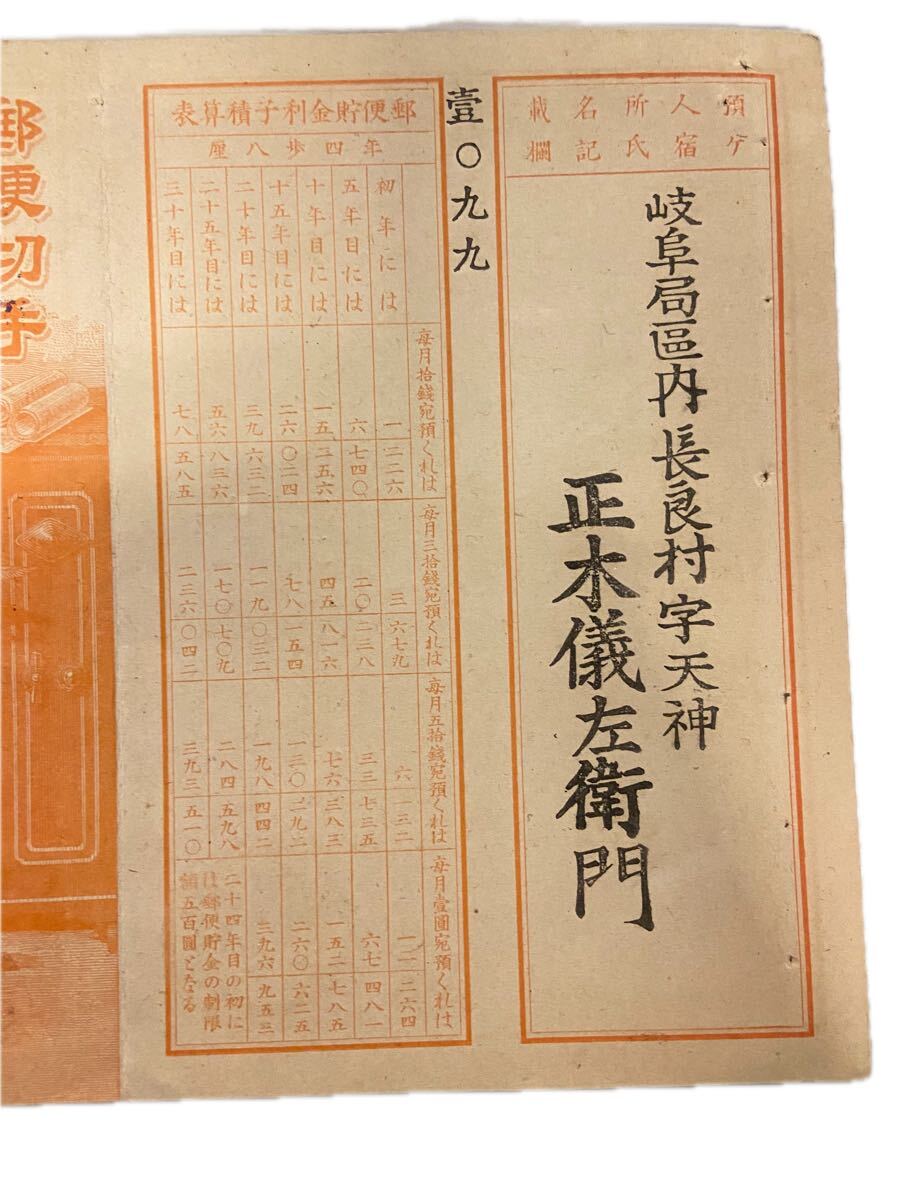 預ケ人宿所氏名記載欄
岐阜局區内長良村字天神
正木儀左衛門
壹〇九九
郵便貯金利子積算表
年四歩八厘
毎月拾錢宛預くれは 毎月三拾錢宛預くれは 毎月五拾錢宛預くれは 毎月壹圓宛預くれは
初年には 一 二二六 三 六七九 六 一三二 一二 二六四
五年目には 六 七四〇 二〇 二三八 三三 七三五 六七 四八一
十年目には 一五 二五六 四五 八一六 七六 三八三 一五二 七八五
十五年目には 二六 〇二四 七八 一五四 一三〇 二九二 二六〇 六二五
二十年目には 三九 六三二 一一九 〇三二 一九八 四四二 三九六 九五三
二十五年目には 五六 八三六 一七〇 七〇九 二八四 五九八
三十年目には 七八 五八五 二三六 〇四二 三九三 五一〇
二十四年目の初に
は郵便貯金の制限
額五百圓となる
郵便切手